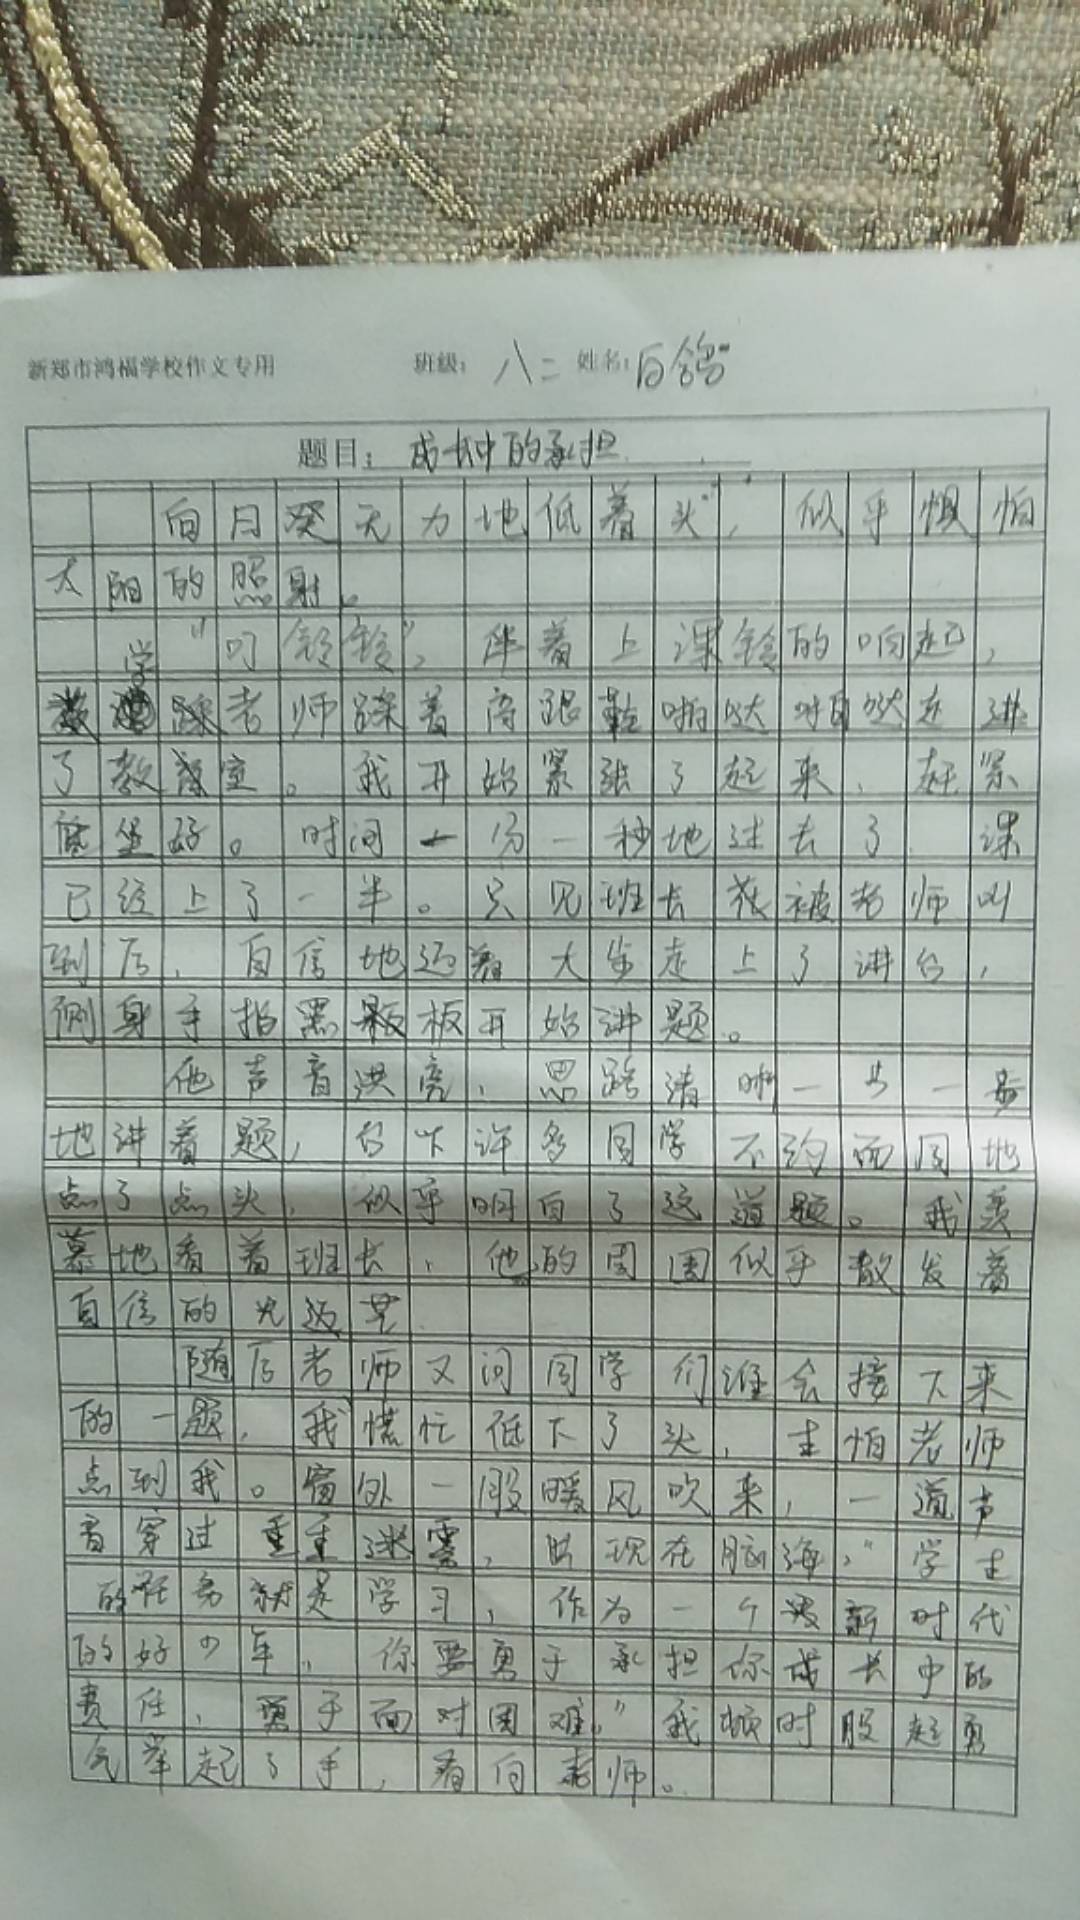 新郑市鸿福学校作文专用 班级：八二 姓名：白鸽
题目：成长中的承担
向日葵无力地低着头，似乎惧怕
太阳的照射。
"叮铃铃"，伴着上课铃的响起，
数学老师踩着高跟鞋啪哒啪哒走进
了教室。我开始紧张了起来，赶紧
坐好。时间一份一秒地过去了，课
已经上了一半。只见班长被老师叫
到后，自信地迈着大步走上了讲台，
侧身手指黑板开始讲题。
他声音洪亮，思路清晰一步一步
地讲着题，台下许多同学不约而同地
点了点头，似乎明白了这道题。我羡
慕地看着班长，他的周围似乎散发着
自信的光芒。
随后老师又问同学们谁会接下来
的一题，我慌忙低下了头，生怕老师
点到我。窗外一股暖风吹来，一道声
音穿过重重迷雾，出现在脑海，"学生
的任务就是学习，作为一个新时代
的好少年，你要勇于承担你成长中的
责任，勇于面对困难。"我顿时股起勇
气举起了手，看向老师。